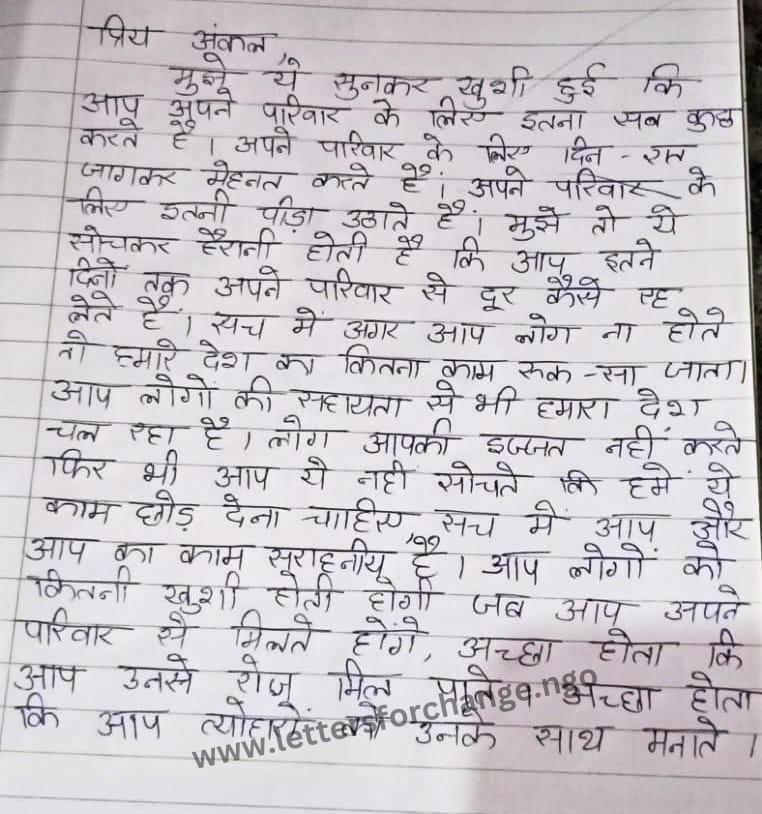 प्रिय अंकल,
मुझे ये सुनकर खुशी हुई कि
आप अपने परिवार के लिए इतना सब कुछ
करते हैं। अपने परिवार के लिए दिन - रात
जागकर मेहनत करते हैं। अपने परिवार के
लिए इतनी पीड़ा उठाते हैं। मुझे तो ये
सोचकर हैरानी होती है कि आप इतने
दिनों तक अपने परिवार से दूर कैसे रह
लेते हैं। सच में अगर आप लोग ना होते
तो हमारे देश का कितना काम रुक -सा जाता।
आप लोगों की सहायता से भी हमारा देश
चल रहा है। लोग आपकी इज्जत नहीं करते
फिर भी आप ये नहीं सोचते कि हमें ये
काम छोड़ देना चाहिए, सच में आप और
आप का काम सराहनीय है। आप लोगों को
कितनी खुशी होती होगी जब आप अपने
परिवार से मिलते होंगे, अच्छा होता कि
आप उनसे रोज़ मिल पाते, अच्छा होता
कि आप त्योहारों को उनके साथ मनाते।
www.lettersforchange.ngo